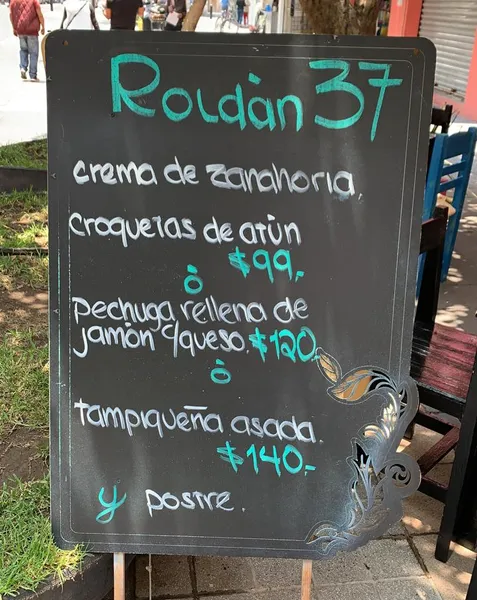 Roldàn 37
crema de zanahoria.
croquetas de atún
$99.
ò
pechuga rellena de
jamón c/queso. $120.
ò
tampiqueña asada.
$140.-
y postre.